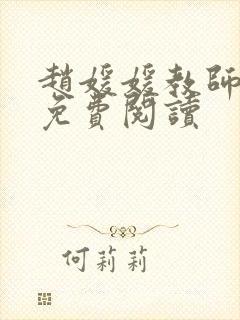 趙媛媛教師
免費閱讀
何莉莉